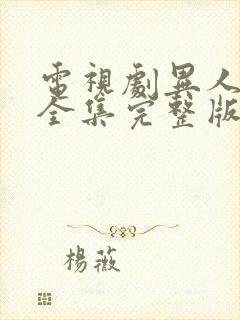 電視劇異人
全集完整版
楊薇